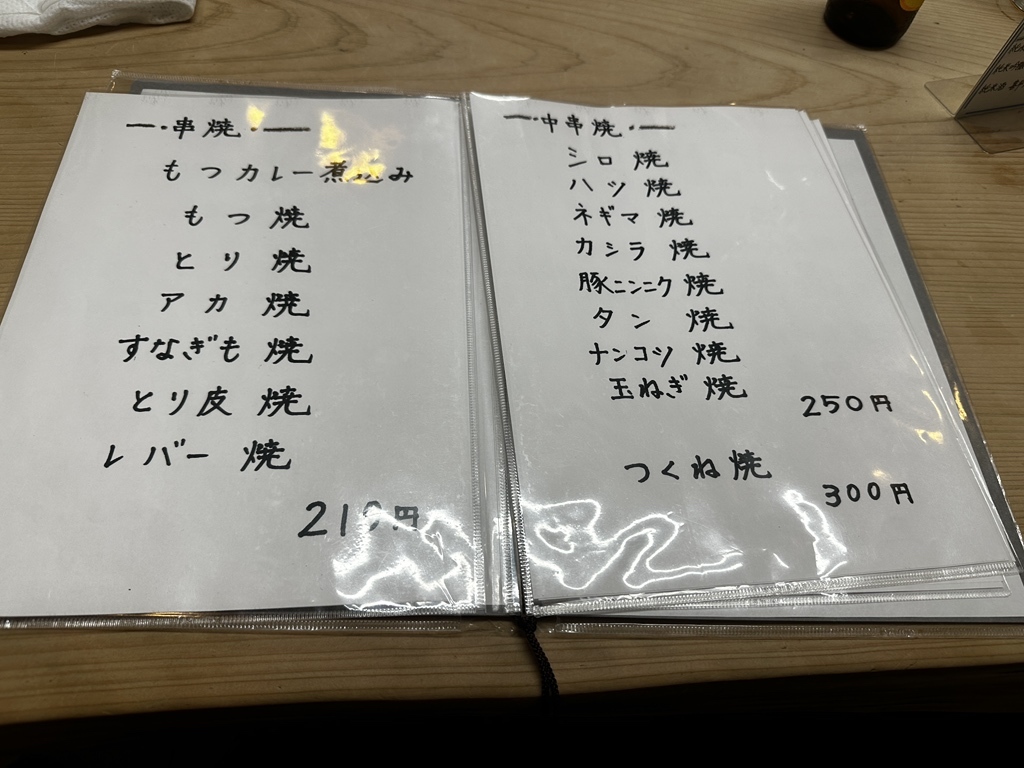 一・串焼・一
もつカレー煮込み
もつ焼
とり焼
アカ焼
すなぎも焼
とり皮焼
レバー焼
一・中串焼・一
シロ焼
ハツ焼
ネギマ焼
カシラ焼
豚ニンニク焼
タン焼
ナンコツ焼
玉ねぎ焼
250円
つくね焼
300円